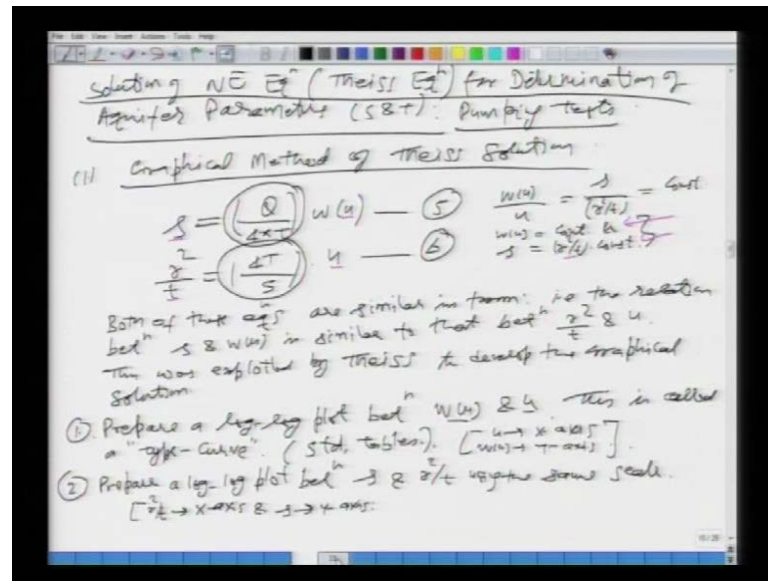 File Edit View Insert Actions Tools Help
Solution of NE Eqⁿ (Theiss Eqⁿ) for Determination of
Aquifer Parameters (S & T): Pumping tests
(1) Graphical Method of Theiss Solution
s = (Q / 4πT) W(u) — (5)
W(u)/u = s/(r²/t) = Const.
W(u) = Const. u
s = (r²/t) Const.
r²/t = (4T/S) u — (6)
Both of these eqⁿs are similar in form: i.e the relation
betⁿ s & W(u) is similar to that betⁿ r²/t & u.
This was exploited by Theiss to develop the graphical
solution.
(1) Prepare a log-log plot betⁿ W(u) & u This is called
a "type-curve". (Std. tables). [u → x axis
W(u) → Y-axis].
(2) Prepare a log-log plot betⁿ s & r²/t using the same scale.
[r²/t → x-axis & s → Y axis.